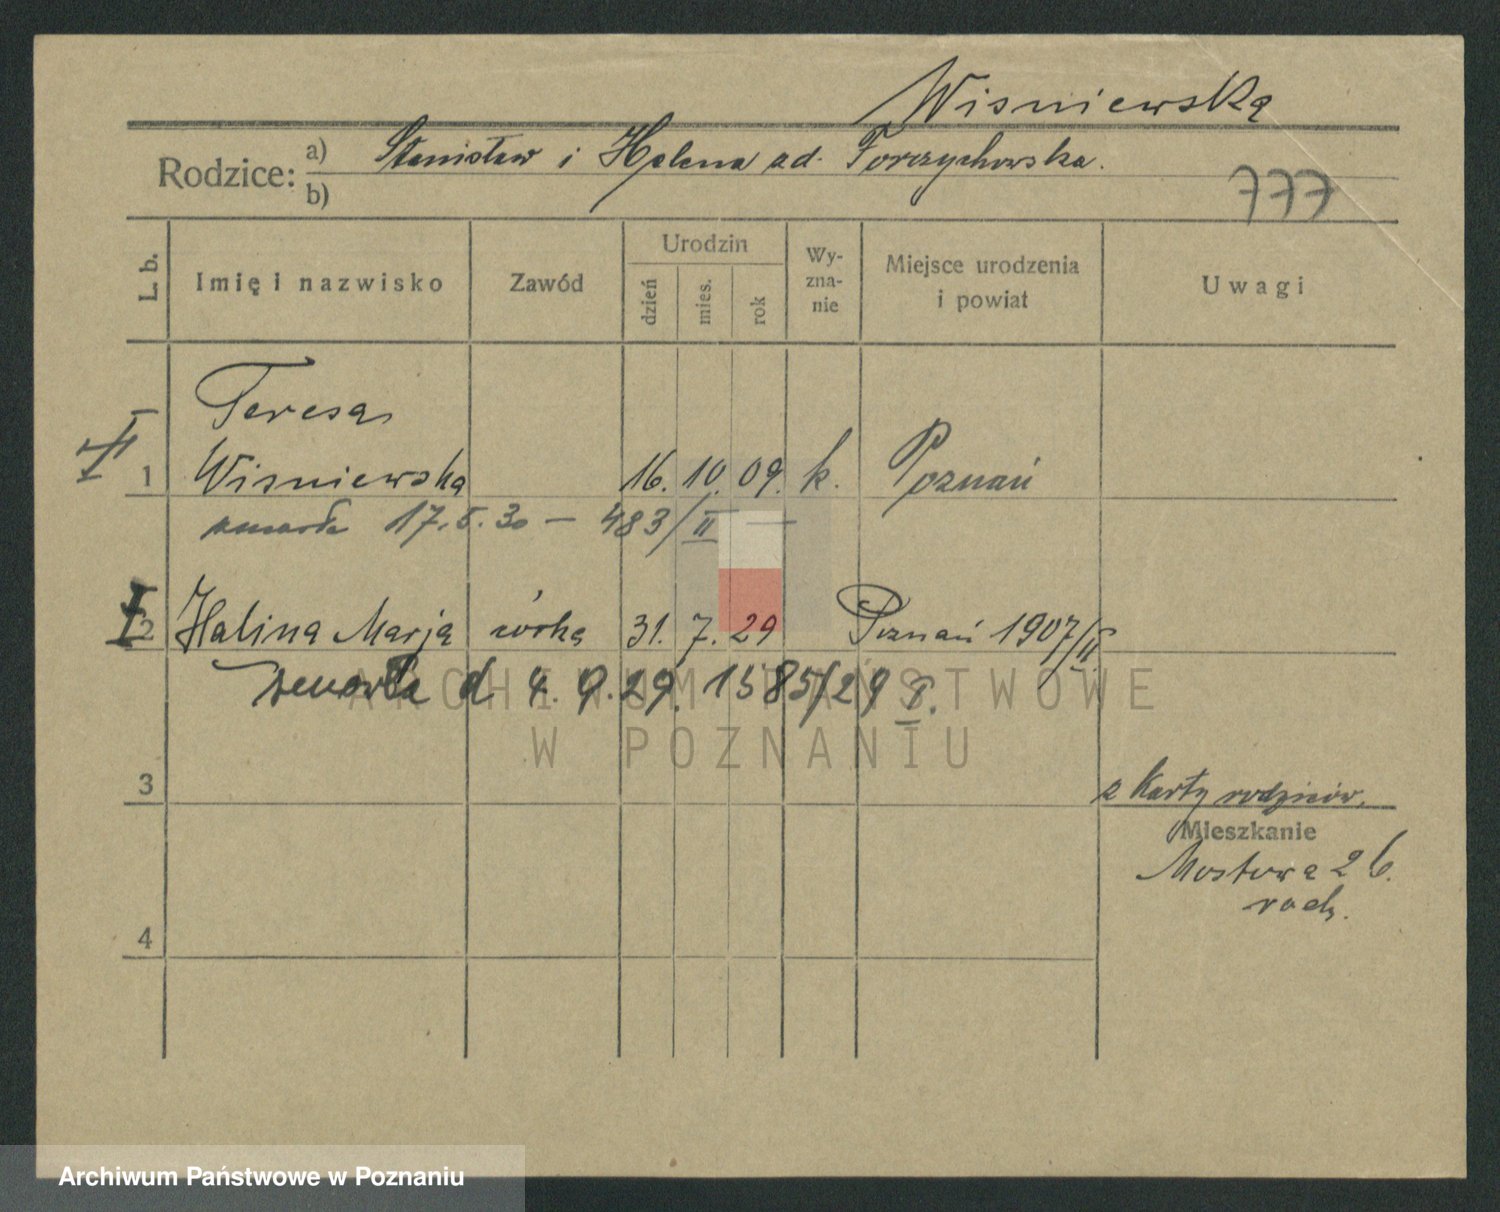 Wisniewska
Rodzice: a) Stanisław i Helena zd. Torzychowska.
b)
777
L. b. Imię i nazwisko Zawód Urodzin dzień mies. rok Wy-zna-nie Miejsce urodzenia i powiat Uwagi
Teresa
1 Wisniewska 16. 10. 09. k. Poznań
zmarła 17.5.30 — 483/II —
2 Halina Marja córka 31. 7. 29 Poznań 1907/II
zmarła d. 4. 9. 29. 1585/29 I.
ARCHIWUM PAŃSTWOWE
W POZNANIU
3
z karty rodziców.
Mieszkanie
Mostowa 26.
rodz.
4
Archiwum Państwowe w Poznaniu